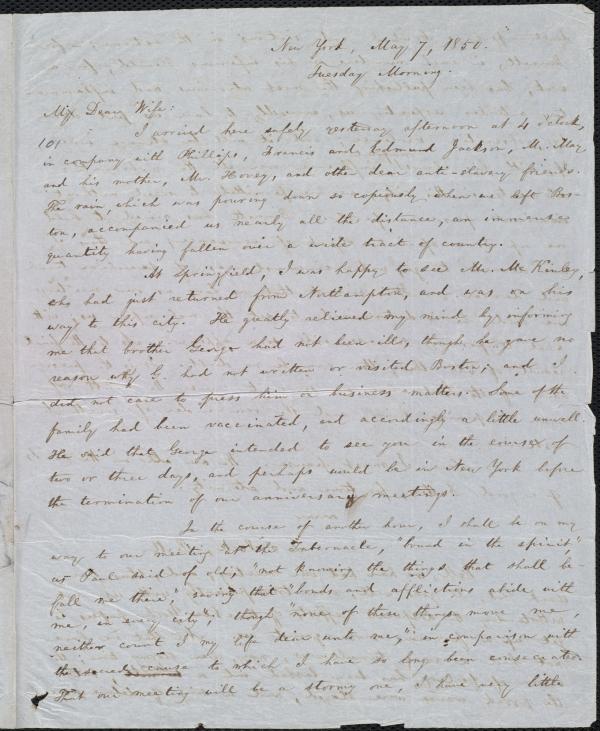 New York, May 7, 1850.
Tuesday Morning.
My Dear Wife:
101
I arrived here safely yesterday afternoon at 4 o'clock,
in company with Phillips, Francis and Edmund Jackson, Mr. May
and his mother, Mr. Hovey, and other dear anti-slavery friends.
The rain, which was pouring down so copiously when we left Bos-
ton, accompanied us nearly all the distance, an immense
quantity having fallen over a wide tract of country.
At Springfield, I was happy to see Mr. McKinley,
who had just returned from Northampton, and was on his
way to this city. He greatly relieved my mind by informing
me that brother George had not been ill, though he gave no
reason why G. had not written or visited Boston; and I
did not care to press him on business matters. Some of the
family had been vaccinated, and accordingly a little unwell.
He said that George intended to see you in the course of
two or three days, and perhaps would be in New York before
the termination of our anniversary meetings.
In the course of another hour, I shall be on my
way to our meeting at the Tabernacle, "bound in the spirit,"
as Paul said of old, "not knowing the things that shall be-
fall me there," saving that "bonds and afflictions abide with
me, in every city"; though "none of these things move me,
neither count I my life dear unto me," in comparison with
the sacred cause to which I have so long been consecrated.
That our meeting will be a stormy one, I have very little